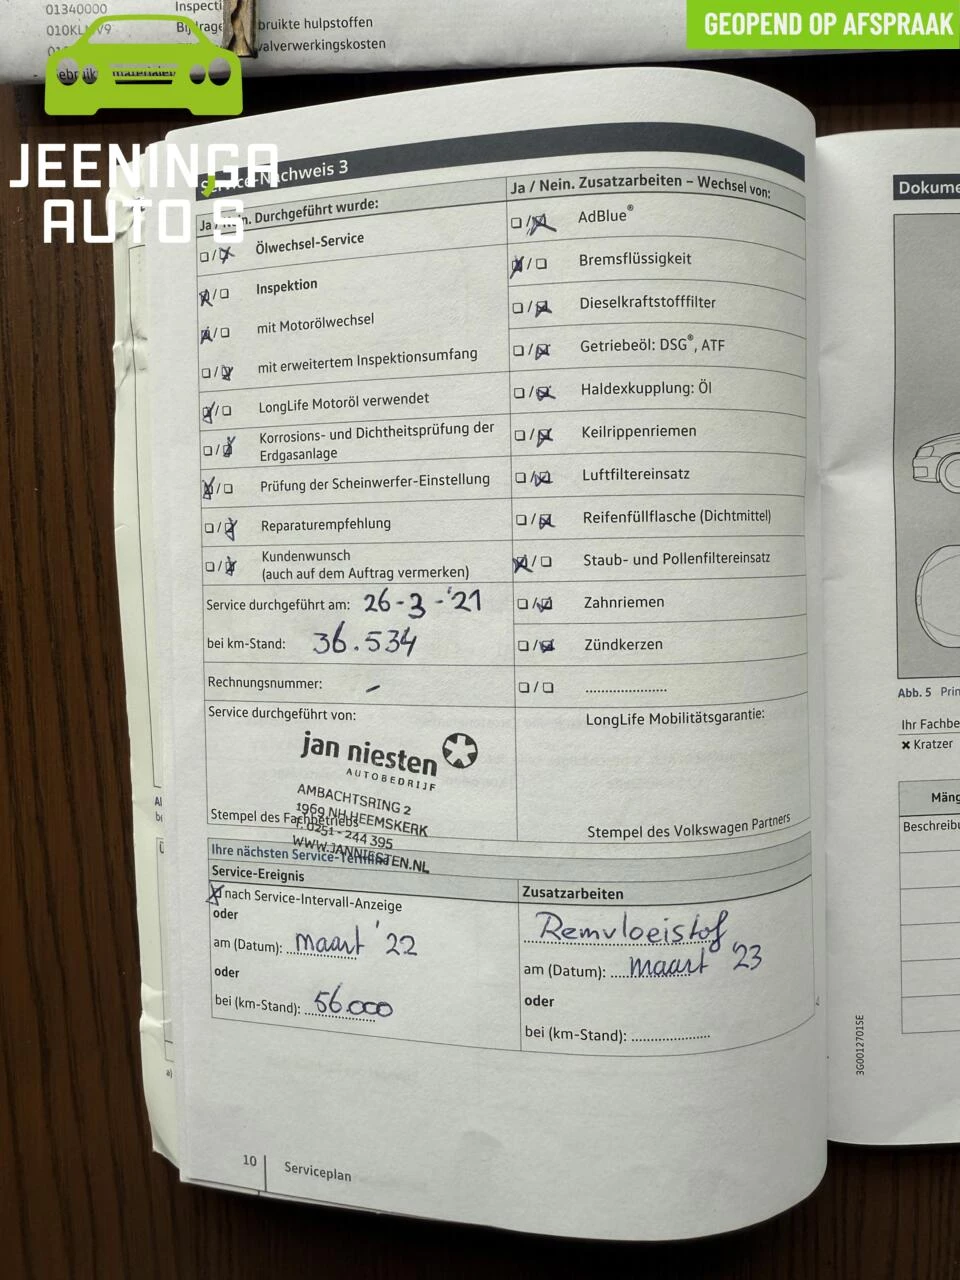 01340000 Inspecti
Bijdrage
bruikte hulpstoffen
valverwerkingskosten
GEOPEND OP AFSPRAAK
JEENINGA
AUTO'S
Service-Nachweis 3
Ja / Nein. Durchgeführt wurde:
☐/☒ Ölwechsel-Service
☒/☐ Inspektion
☒/☐ mit Motorölwechsel
☐/☒ mit erweitertem Inspektionsumfang
☒/☐ LongLife Motoröl verwendet
☐/☒ Korrosions- und Dichtheitsprüfung der
Erdgasanlage
☒/☐ Prüfung der Scheinwerfer-Einstellung
☐/☒ Reparaturempfehlung
☐/☒ Kundenwunsch
(auch auf dem Auftrag vermerken)
Service durchgeführt am: 26-3-'21
bei km-Stand: 36.534
Rechnungsnummer: –
Service durchgeführt von:
jan niesten
AUTOBEDRIJF
AMBACHTSRING 2
1969 NH HEEMSKERK
T. 0251 - 244 395
WWW.JANNIESTEN.NL
Stempel des Fachbetriebs
Ja / Nein. Zusatzarbeiten – Wechsel von:
☐/☒ AdBlue®
☒/☐ Bremsflüssigkeit
☐/☒ Dieselkraftstofffilter
☐/☒ Getriebeöl: DSG®, ATF
☐/☒ Haldexkupplung: Öl
☐/☒ Keilrippenriemen
☐/☒ Luftfiltereinsatz
☐/☒ Reifenfüllflasche (Dichtmittel)
☒/☐ Staub- und Pollenfiltereinsatz
☐/☒ Zahnriemen
☐/☒ Zündkerzen
☐/☐ ......................
LongLife Mobilitätsgarantie:
Stempel des Volkswagen Partners
Ihre nächsten Service-Termine
Service-Ereignis
☒ nach Service-Intervall-Anzeige
oder
am (Datum): maart '22
oder
bei (km-Stand): 56.000
Zusatzarbeiten
Remvloeistof
am (Datum): maart '23
oder
bei (km-Stand): ......................
10 Serviceplan
Dokume
Abb. 5 Prin
Ihr Fachbe
✖ Kratzer
Mäng
Beschreibu
3G0012701SE